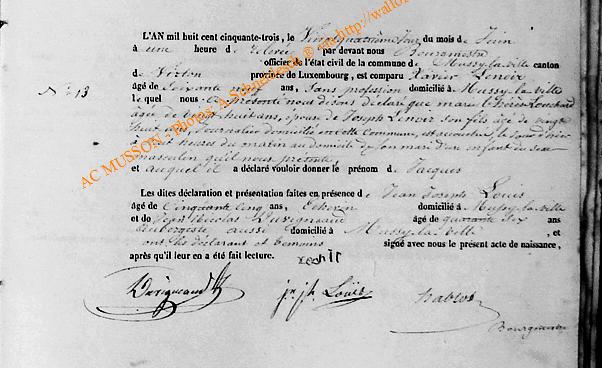 L'AN mil huit cent cinquante-trois, le Vingtquatrième jour du mois de Juin
à une heure de relevée par devant nous Bourgmestre
officier de l'état civil de la commune de Mussy-la-ville canton
de Virton province de Luxembourg, est comparu Xavier Lenoir
N° 13
âgé de Soixante ans, Sans profession domicilié à Mussy-la-ville
le quel nous a présenté nous disons déclaré que marie thérèse
âgée de vingt huit ans, épouse de Joseph Lenoir son fils âgé de vingt
huit ans, Journalier domicilié en cette Commune, est accouchée
à sept heures du matin au domicile de son mari d'un enfant du sexe
masculin qu'il nous présente,
et auquel il a déclaré vouloir donner le prénom de Jacques
Les dites déclaration et présentation faites en présence de Jean Joseph Louis
âgé de Cinquante Cinq ans, domicilié à Mussy-la-ville
et de Jean Nicolas Duvigneaud âgé de quarante Six ans
aubergiste aussi domicilié à Mussy-la-ville, et
ont les déclarant et témoins signé avec nous le présent acte de naissance,
après qu'il leur en a été fait lecture.
Duvigneaud
Jh. Jh. Louis
Bourgmestre
AC MUSSON - Photog. A. Schmaleseck ® site http://wallo